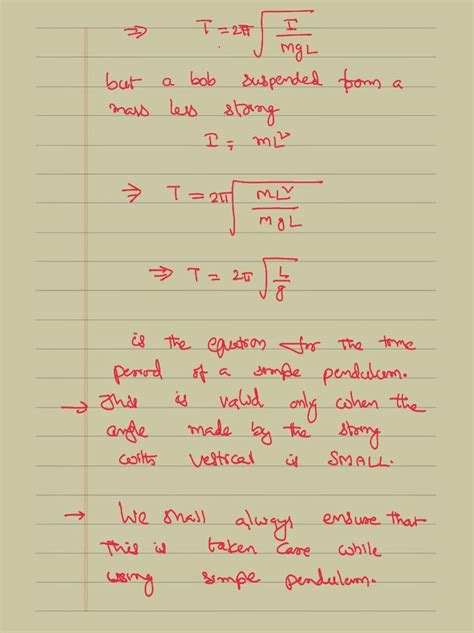 ⇒ T = 2π √(I / mgL)
but a bob suspended from a
mass less string
I = mL²
⇒ T = 2π √(mL² / mgL)
⇒ T = 2π √(L / g)
is the equation for the time
period of a simple pendulum.
→ This is valid only when the
angle made by the string
with vertical is SMALL.
→ We shall always ensure that
this is taken care while
using simple pendulum.